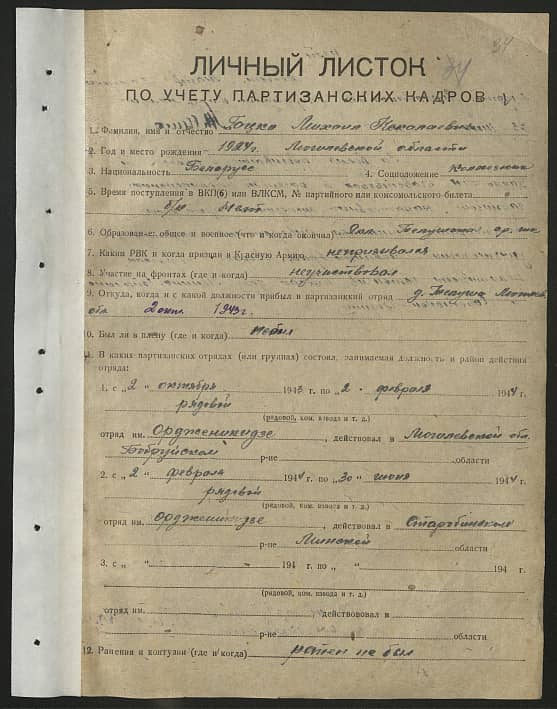 34
ЛИЧНЫЙ ЛИСТОК
ПО УЧЕТУ ПАРТИЗАНСКИХ КАДРОВ
1. Фамилия, имя и отчество Михаил Николаевич
2. Год и место рождения 1924г. Могилевской области
3. Национальность Белорусс 4. Соцположение Колхозник
5. Время поступления в ВКП(б) или ВЛКСМ, № партийного или комсомольского билета
б/п
6. Образование: общее и военное (что и когда окончил)
7. Каким РВК и когда призван в Красную Армию непризывался
8. Участие на фронтах (где и когда) неучаствовал
9. Откуда, когда и с какой должности прибыл в партизанский отряд д.
обл. 2 окт. 1943г.
10. Был ли в плену (где и когда) небыл
11. В каких партизанских отрядах (или группах) состоял, занимаемая должность и район действия
отряда:
1. с „2" октября 1943 г. по „2" февраля 1944 г.
рядовой
(рядовой, ком. взвода и т. д.)
отряд им. Орджоникидзе, действовал в Могилевской обл.
Бобруйском р-не области
2. с „2" февраля 1944 г. по „30" июня 1944 г.
рядовой
(рядовой, ком. взвода и т. д.)
отряд им. Орджоникидзе, действовал в Старобинском
р-не Минской области
3. с „ " 194 г. по „ " 194 г.
(рядовой, ком. взвода и т. д.)
отряд им. действововал в
р-не области
12. Ранения и контузии (где и когда) ранен не был